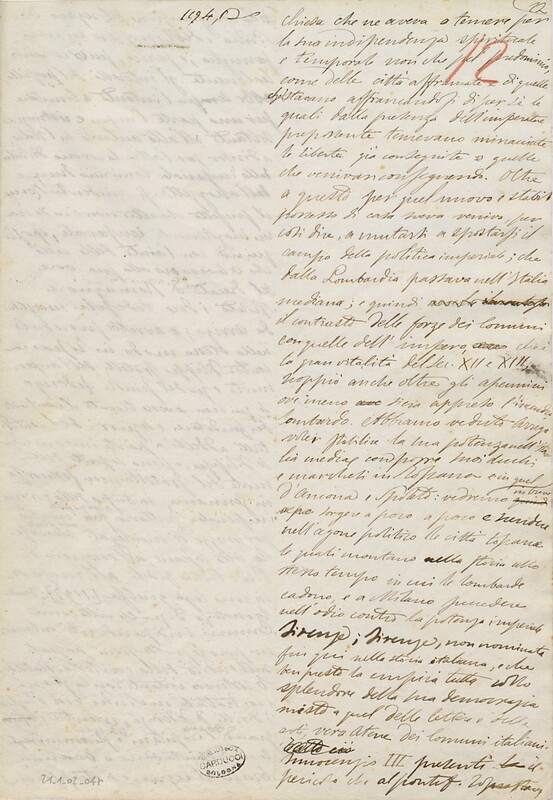 1194,
22
12
chiesa che ne aveva a temere per
la sua indipendenza spirituale
e temporale non che pel predominio,
come delle città affrancate e di quelle
che stavano affrancandosi di per sé le
quali dalla presenza dell'imperatore
prepotente temevano minacciate
le libertà già conseguite o quelle
che venivan conseguendo. Oltre
a questo per quel nuovo e stabil
possesso di casa sveva veniva per
così dire, a mutarsi a spostarsi il
campo della politica imperiale; che
dalla Lombardia passava nell'Italia
mediana; e quindi
il contrasto delle forze dei comuni
con quelle dell'impero,
la gran vitalità dei sec. XII e XIII
scoppiò anche oltre gli apennini
ove meno s'era appreso l'incendio
lombardo. Abbiamo veduto Arrigo
voler stabilire la sua potenza nell'Ita
lia media con porre suoi duchi
e marchesi in Toscana e in quel
d'Ancona e Spoleto: vedremo in breve
sorgere a poco a poco e scendere
nell'agone politico le città toscane
le quali montano nella storia allo
stesso tempo in cui le lombarde
cadono, e a Milano succedere
nell'odio contro la potenza imperiale
Firenze; Firenze, non nominata
fin qui nella storia italiana, e che
tra presto la empirà tutta collo
splendore della sua democrazia
misto a quel delle lettere e delle
arti, vera Atene dei comuni italiani.
Innocenzio III presentì il
pericolo che al pontef.
CARDUCCI
BOLOGNA